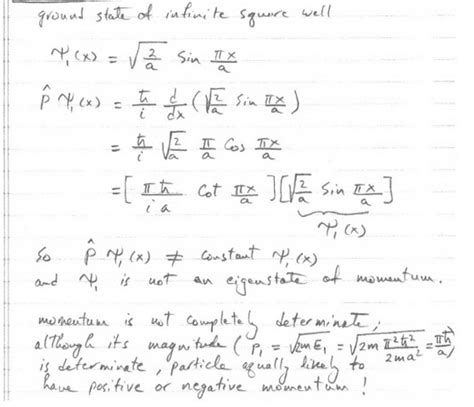 ground state of infinite square well
Ψ₁(x) = √(2/a) Sin πx/a
P̂ Ψ₁(x) = ħ/i d/dx (√(2/a) Sin πx/a)
= ħ/i √(2/a) π/a Cos πx/a
= [πħ/ia Cot πx/a][√(2/a) Sin πx/a]
Ψ₁(x)
So P̂ Ψ₁(x) ≠ constant Ψ₁(x)
and Ψ₁ is not an eigenstate of momentum.
momentum is not completely determinate;
although its magnitude (p₁ = √(2mE₁) = √(2m π²ħ²/2ma²) = πħ/a)
is determinate, particle equally likely to
have positive or negative momentum!